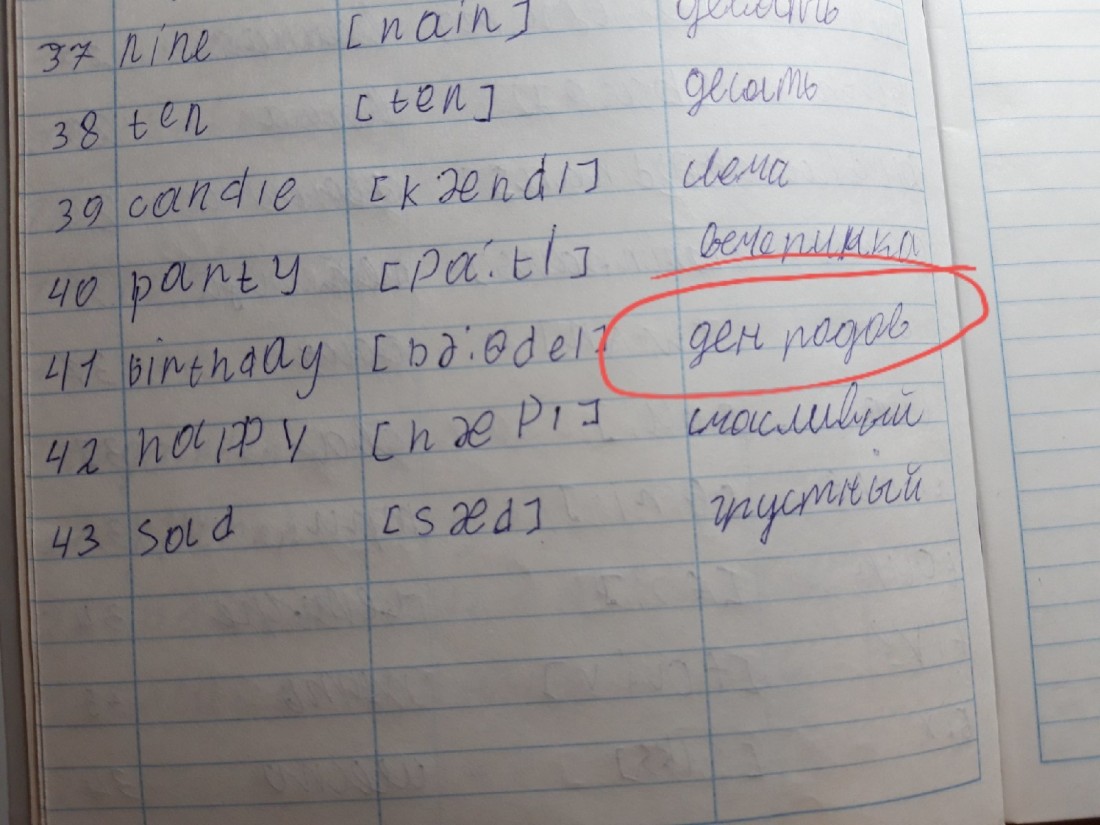 37 nine [nain] десать
38 ten [ten] десать
39 candle [kændl] свеча
40 party [pa:tI] вечеринка
41 Birthday [bə:θdeI] ден родов
42 happy [hæpI] счасливый
43 sad [sæd] грустный